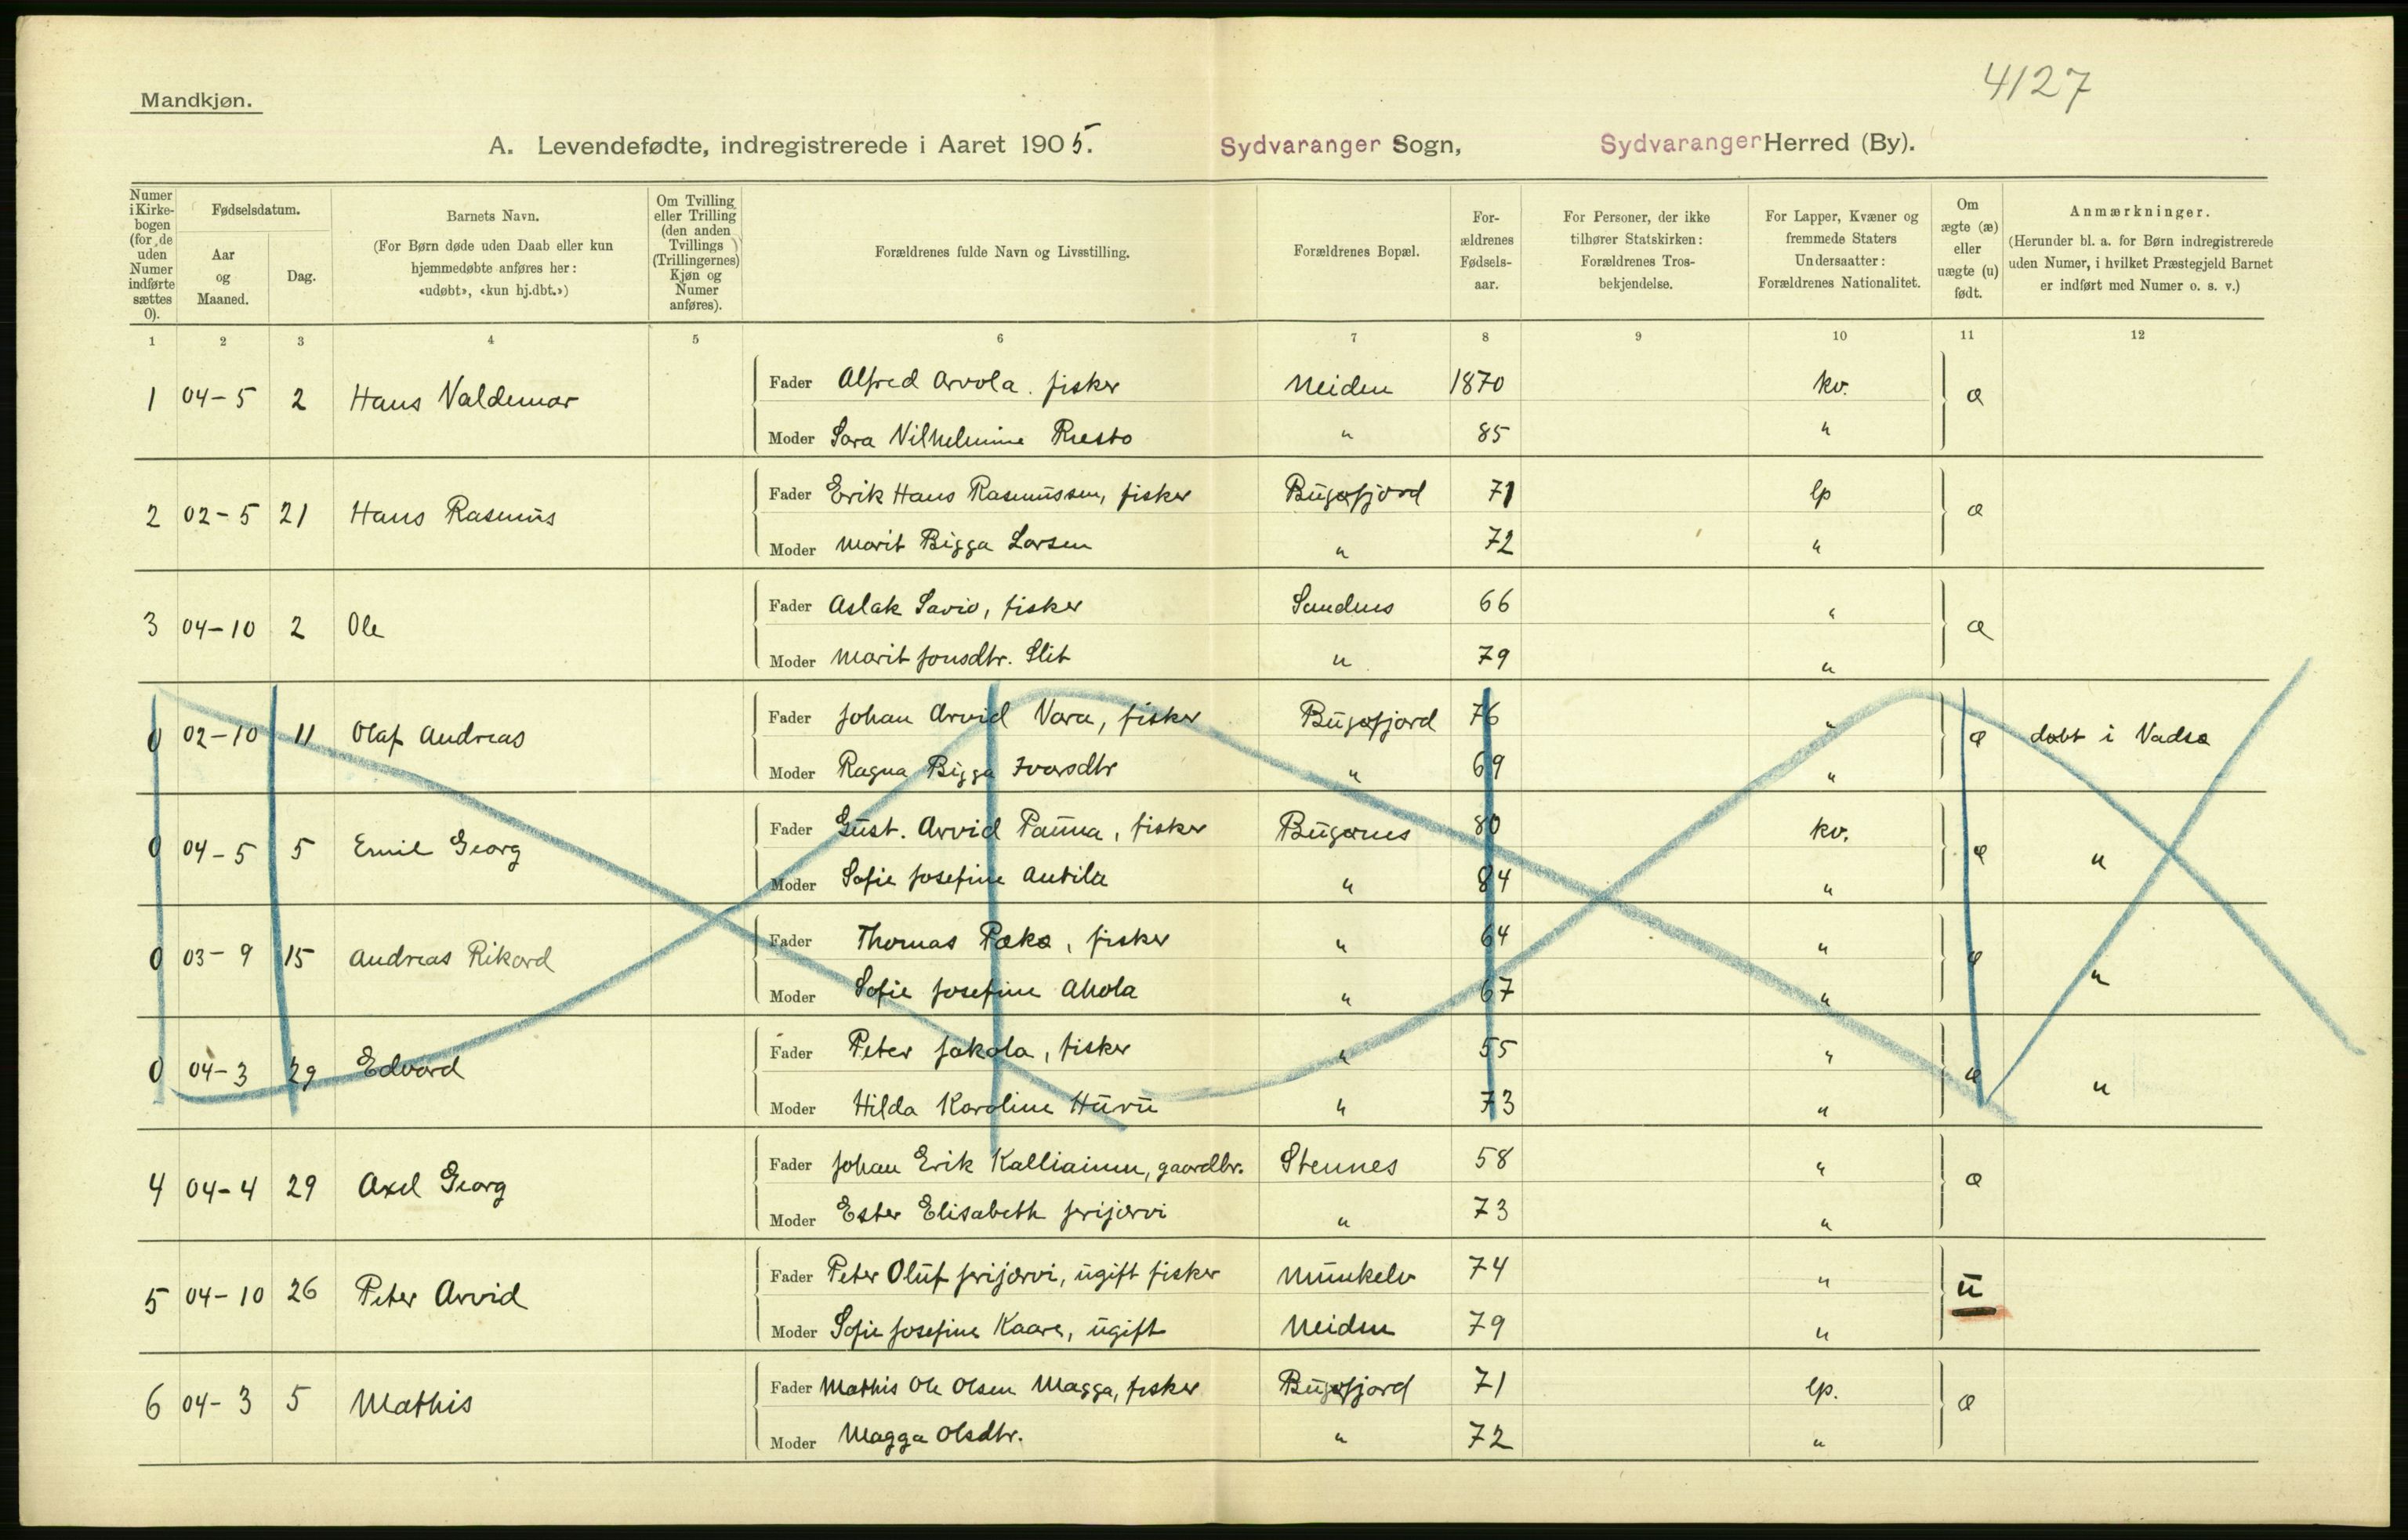 4127
Mandkjøn.
A. Levendefødte, indregistrerede i Aaret 1905. Sydvaranger Sogn, Sydvaranger Herred (By).
Numer i Kirkebogen (for de uden Numer indførte sættes 0).
Fødselsdatum.
Aar og Maaned.
Dag.
Barnets Navn.
(For Børn døde uden Daab eller kun hjemmedøbte anføres her: «udøbt», «kun hj.dbt.»)
Om Tvilling eller Trilling (den anden Tvillings (Trillingernes) Kjøn og Numer anføres).
Forældrenes fulde Navn og Livsstilling.
Forældrenes Bopæl.
For-ældrenes Fødsels-aar.
For Personer, der ikke tilhører Statskirken: Forældrenes Tros-bekjendelse.
For Lapper, Kvæner og fremmede Staters Undersaatter: Forældrenes Nationalitet.
Om ægte (æ) eller uægte (u) født.
Anmærkninger.
(Herunder bl. a. for Børn indregistrerede uden Numer, i hvilket Præstegjeld Barnet er indført med Numer o. s. v.)
1 2 3 4 5 6 7 8 9 10 11 12
1 04-5 2 Hans Valdemar Fader Alfred Arvola. fisker Neiden 1870 kv. æ
Moder Sara Vilhelmine Ruesto " 85 "
2 02-5 21 Hans Rasmus Fader Erik Hans Rasmussen, fisker Bugøfjord 71 lp æ
Moder Marit Bigga Larsen " 72 "
3 04-10 2 Ole Fader Aslak Savio, fisker Sandnes 66 " æ
Moder Marit Jonsdtr. Slit " 79 "
0 02-10 11 Olaf Andreas Fader Johan Arvid Vara, fisker Bugøfjord 76 " æ døbt i Vadsø
Moder Ragna Bigga Ivarsdtr " 69 "
0 04-5 5 Emil Georg Fader Gust. Arvid Pauna, fisker Bugønes 80 kv. æ "
Moder Sofie Josefine Antila " 84 "
0 03-9 15 Andreas Rikard Fader Thomas Pækø, fisker " 64 " æ "
Moder Sofie Josefine Ahola " 67 "
0 04-3 29 Edvard Fader Peter Jakola, fisker " 55 " æ "
Moder Hilda Karoline Huru " 73 "
4 04-4 29 Axel Georg Fader Johan Erik Kalliainen, gaardbr. Stennes 58 " æ
Moder Ester Elisabeth Jerijærvi " 73 "
5 04-10 26 Peter Arvid Fader Peter Oluf Jerijærvi, ugift fisker Munkelv 74 " u
Moder Sofie Josefine Kaare, ugift Neiden 79 "
6 04-3 5 Mathis Fader Mathis Ole Olsen Magga, fisker Bugøfjord 71 lp. æ
Moder Magga Olsdtr. " 72 "